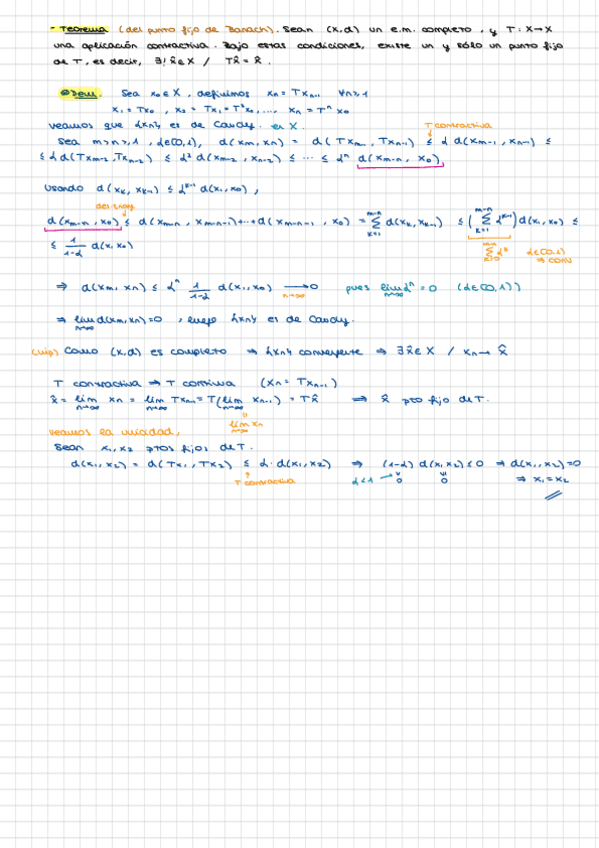 - Teorema (del punto fijo de Banach). Sean (X,d) un e.m. completo, y T: X→X
una aplicación contractiva. Bajo estas condiciones, existe un y sólo un punto fijo
de T, es decir, ∃! x̂ ∈ X / Tx̂ = x̂.
Dem. Sea x₀ ∈ X, definimos xₙ = Txₙ₋₁ ∀n≥1
x₁ = Tx₀, x₂ = Tx₁ = T²x₀, ..., xₙ = Tⁿx₀
veamos que {xₙ} es de Cauchy. en X.
T contractiva
Sea m>n≥1, α∈(0,1), d(xₘ,xₙ) = d(Txₘ₋₁, Txₙ₋₁) ≤ α d(xₘ₋₁, xₙ₋₁) ≤
≤ α d(Txₘ₋₂, Txₙ₋₂) ≤ α² d(xₘ₋₂, xₙ₋₂) ≤ ... ≤ αⁿ d(xₘ₋ₙ, x₀)
Usando d(xₖ, xₖ₋₁) ≤ αᵏ⁻¹ d(x₁,x₀),
des. triang.
d(xₘ₋ₙ, x₀) ≤ d(xₘ₋ₙ, xₘ₋ₙ₋₁)+...+d(xₘ₋ₙ₋₁, x₀) = ∑ₖ₌₁ᵐ⁻ⁿ d(xₖ, xₖ₋₁) ≤ (∑ₖ₌₁ᵐ⁻ⁿ αᵏ⁻¹) d(x₁, x₀) ≤
≤ 1/(1-α) d(x₁,x₀)
α∈(0,1) ⇒ conv
⇒ d(xₘ, xₙ) ≤ αⁿ 1/(1-α) d(x₁, x₀) →ₙ→∞ 0 pues lim αⁿ = 0 (α∈(0,1))
⇒ lim d(xₘ, xₙ) = 0, luego {xₙ} es de Cauchy.
(hip) Como (X,d) es completo ⇒ {xₙ} convergente ⇒ ∃ x̂ ∈ X / xₙ → x̂
T contractiva ⇒ T continua (xₙ = Txₙ₋₁)
x̂ = lim xₙ = lim Txₙ₋₁ = T(lim xₙ₋₁) = Tx̂ ⇒ x̂ pto fijo de T.
lim xₙ
veamos la unicidad,
Sean x₁, x₂ ptos fijos de T.
d(x₁, x₂) = d(Tx₁, Tx₂) ≤ α · d(x₁, x₂) ⇒ (1-α) d(x₁,x₂) ≤ 0 ⇒ d(x₁, x₂) = 0
T contractiva α<1 → 0 0 ⇒ x₁ = x₂